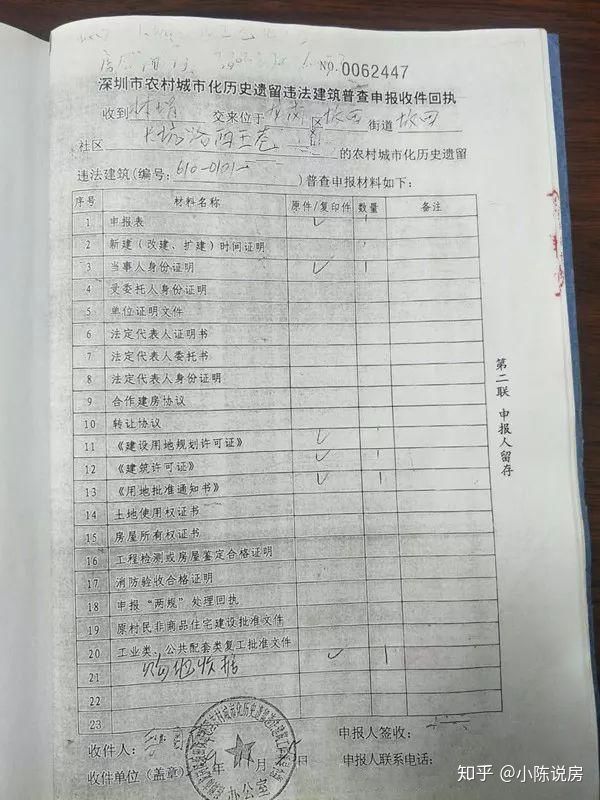 NO.0062447
深圳市农村城市化历史遗留违法建筑普查申报收件回执
收到 交来位于 区 坂田 街道 坂田
社区 的农村城市化历史遗留
违法建筑(编号: 610-0101- )普查申报材料如下:
序号 材料名称 原件/复印件 数量 备注
1 申报表 ✓ 1
2 新建(改建、扩建)时间证明
3 当事人身份证明 ✓ 1
4 受委托人身份证明
5 单位证明文件
6 法定代表人证明书
7 法定代表人委托书
8 法定代表人身份证明
9 合作建房协议
10 转让协议
11 《建设用地规划许可证》 ✓ 1
12 《建筑许可证》 ✓ 1
13 《用地批准通知书》 ✓ 1
14 土地使用权证书
15 房屋所有权证书
16 工程检测或房屋鉴定合格证明
17 消防验收合格证明
18 申报“两规”处理回执
19 原村民非商品住宅建设批准文件
20 工业类、公共配套类复工批准文件
21 收据 ✓ 1
22
23
收件人: 申报人签收:
收件单位(盖章) 年 月 日 申报人联系电话:
办公室
第二联 申报人留存
知乎 @小陈说房